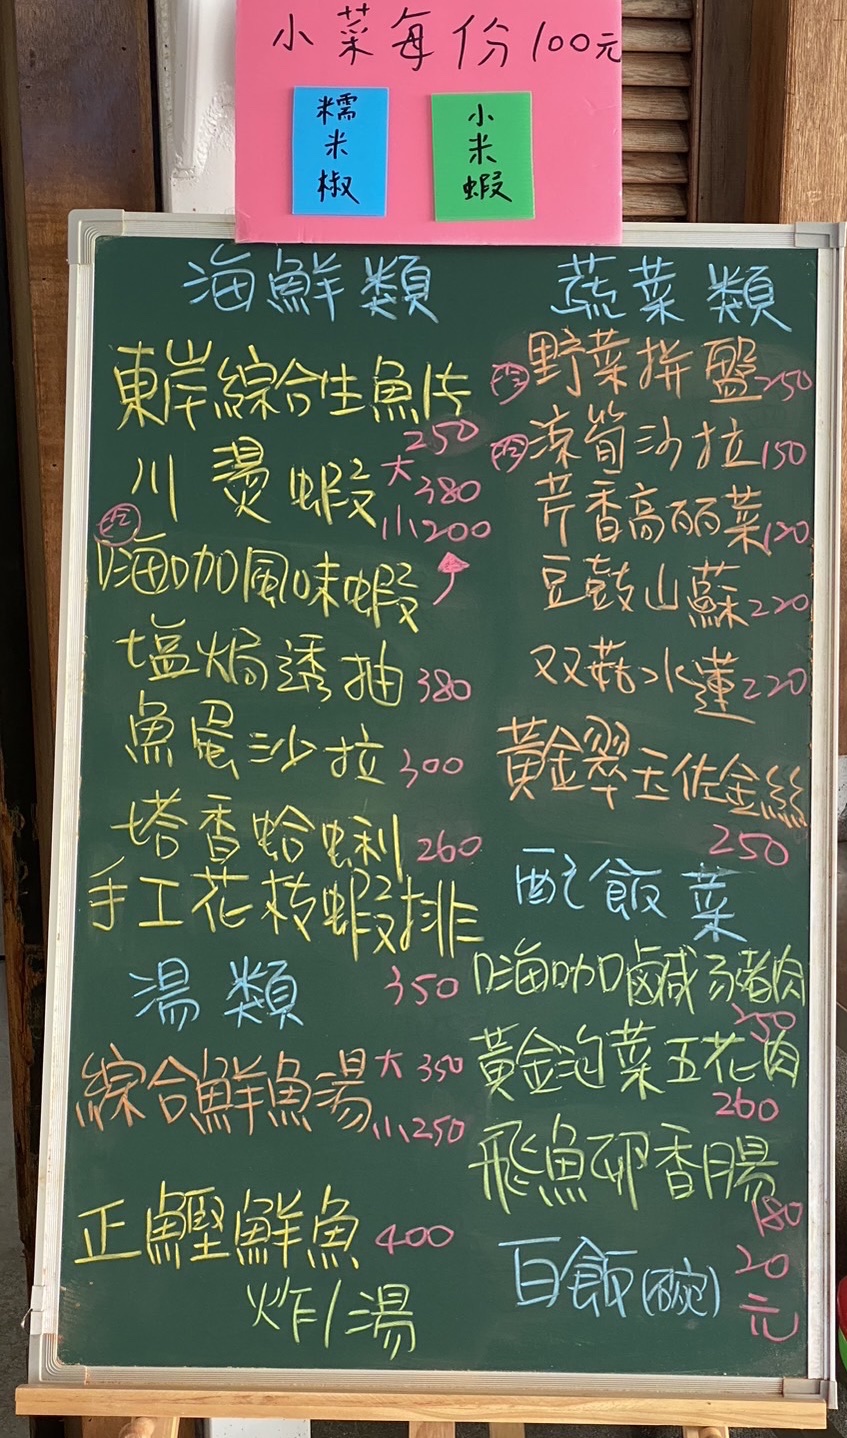 小菜每份100元
糯米椒
小米蝦
海鮮類
東岸綜合生魚片
250
川燙蝦 大380
小200
嗨咖風味蝦
塩焗透抽 380
魚蛋沙拉 300
塔香蛤蜊 260
手工花枝蝦排
350
湯類
綜合鮮魚湯 大350
小250
正鰹鮮魚 400
炸/湯
蔬菜類
野菜拼盤 250
涼筍沙拉 150
芹香高丽菜 120
豆鼓山蘇 220
双菇水蓮 220
黃金翠玉佐金絲
250
配飯菜
嗨咖鹹豬肉
250
黃金泡菜五花肉
260
飛魚卵香腸
180
白飯(碗) 20
元